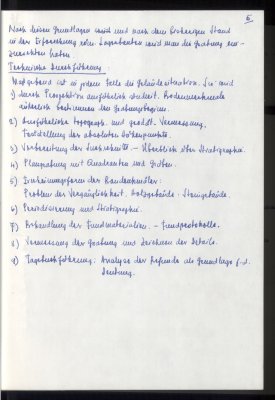 6
Nach diesen Grundlagen wird und nach dem bisherigen Stand
in der Erforschung von Lagerbauten wird man die Grabung
zurichten haben.
Technische Durchführung:
Maßgebend ist in jedem Falle die Geländesituation. Sie wird
1) durch Prospektion ausführlich studiert. Bodenmerkmale
bestimmen den Grabungsbeginn.
2) Ausführliche topograph. und geodät. Vermessung.
Feststellung der absoluten Höhenpunkte.
3) Vorbereitung der Suchschnitte. – Überblick über Stratigraphie.
4) Plangrabung mit Quadranten und Gräben.
5) Erscheinungsform der Baudenkmäler:
Problem der Vergänglichkeit. Holzgebäude. Steingebäude.
6) Periodisierung und Stratigraphie.
7) Behandlung der Fundmaterialien. – Fundprotokolle.
8) Vermessung der Grabung und Zeichnen der Details.
9) Tagebuchführung. Analyse der Befunde als Grundlage f. d.
Deutung.